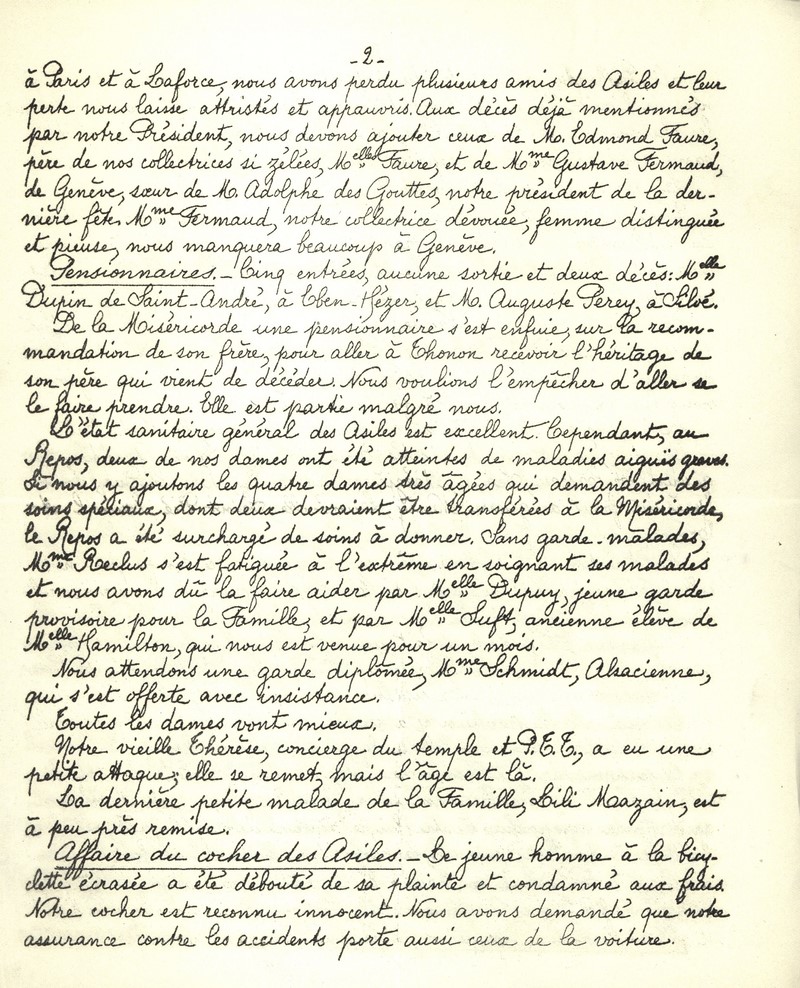 -2-
à Paris et à Laforce, nous avons perdu plusieurs amis des Asiles et leur
perte nous laisse attristés et appauvris. Aux décès déjà mentionnés
par notre Président, nous devons ajouter ceux de M. Edmond Faure,
père de nos collectrices si zélées, Melles Faure, et de Mme Gustave Fermaud,
de Genève, sœur de M. Adolphe des Gouttes, notre président de la der-
nière fête. Mme Fermaud, notre collectrice dévouée, femme distinguée
et pieuse, nous manquera beaucoup à Genève.
Pensionnaires. - Cinq entrées, aucune sortie et deux décès: Melle
Dupin de Saint-André, à Eben-Hézer, et M. Auguste Perey, à Siloé.
De la Miséricorde une pensionnaire s'est enfuie, sur la recom-
mandation de son frère, pour aller à Thonon recevoir l'héritage de
son père qui vient de décéder. Nous voulions l'empêcher d'aller se
le faire prendre. Elle est partie malgré nous.
L'état sanitaire général des Asiles est excellent. Cependant, au
Repos, deux de nos dames ont été atteintes de maladies aiguës graves.
Si nous y ajoutons les quatre dames très âgées qui demandent des
soins spéciaux, dont deux devraient être transférées à la Miséricorde,
le Repos a été surchargé de soins à donner. Sans garde-malades,
Mme Reclus s'est fatiguée à l'extrême en soignant ses malades
et nous avons dû la faire aider par Melle Dupuy, jeune garde
provisoire pour la Famille, et par Melle Suft, ancienne élève de
Melle Hamilton, qui nous est venue pour un mois.
Nous attendons une garde diplômée, Mme Schmidt, Alsacienne,
qui s'est offerte avec insistance.
Toutes les dames vont mieux.
Notre vieille Thérèse, concierge du temple et P.E.T., a eu une
petite attaque; elle se remet, mais l'âge est là.
La dernière petite malade de la Famille, Lili Mazain, est
à peu près remise.
Affaire du cocher des Asiles. - Le jeune homme à la bicy-
clette écrasée a été débouté de sa plainte et condamné aux frais.
Notre cocher est reconnu innocent. Nous avons demandé que notre
assurance contre les accidents porte aussi ceux de la voiture.